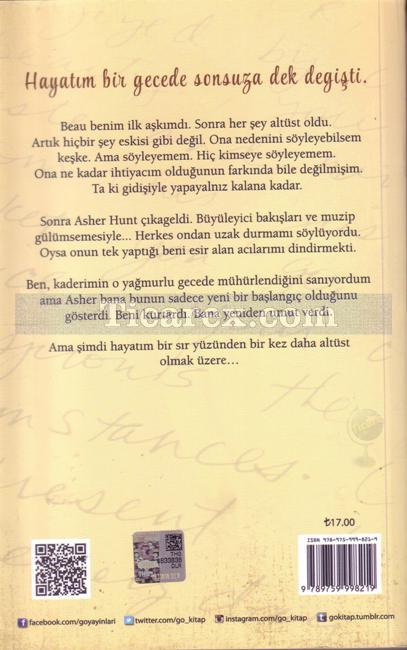 Hayatım bir gecede sonsuza dek değişti.
Beau benim ilk aşkımdı. Sonra her şey altüst oldu.
Artık hiçbir şey eskisi gibi değil. Ona nedenini söyleyebilsem
keşke. Ama söyleyemem. Hiç kimseye söyleyemem.
Ona ne kadar ihtiyacım olduğunun farkında bile değilmişim.
Ta ki gidişiyle yapayalnız kalana kadar.
Sonra Asher Hunt çıkageldi. Büyüleyici bakışları ve muzip
gülümsemesiyle... Herkes ondan uzak durmamı söylüyordu.
Oysa onun tek yaptığı beni esir alan acılarımı dindirmekti.
Ben, kaderimin o yağmurlu gecede mühürlendiğini sanıyordum
ama Asher bana bunun sadece yeni bir başlangıç olduğunu
gösterdi. Beni kurtardı. Bana yeniden umut verdi.
Ticarex.com
Ama şimdi hayatım bir sır yüzünden bir kez daha altüst
olmak üzere...
₺17.00
ISBN 978-975-999-821-9
9 789759 998219
facebook.com/goyayinlari
twitter.com/go_kitap
instagram.com/go_kitap
gokitap.tumblr.com